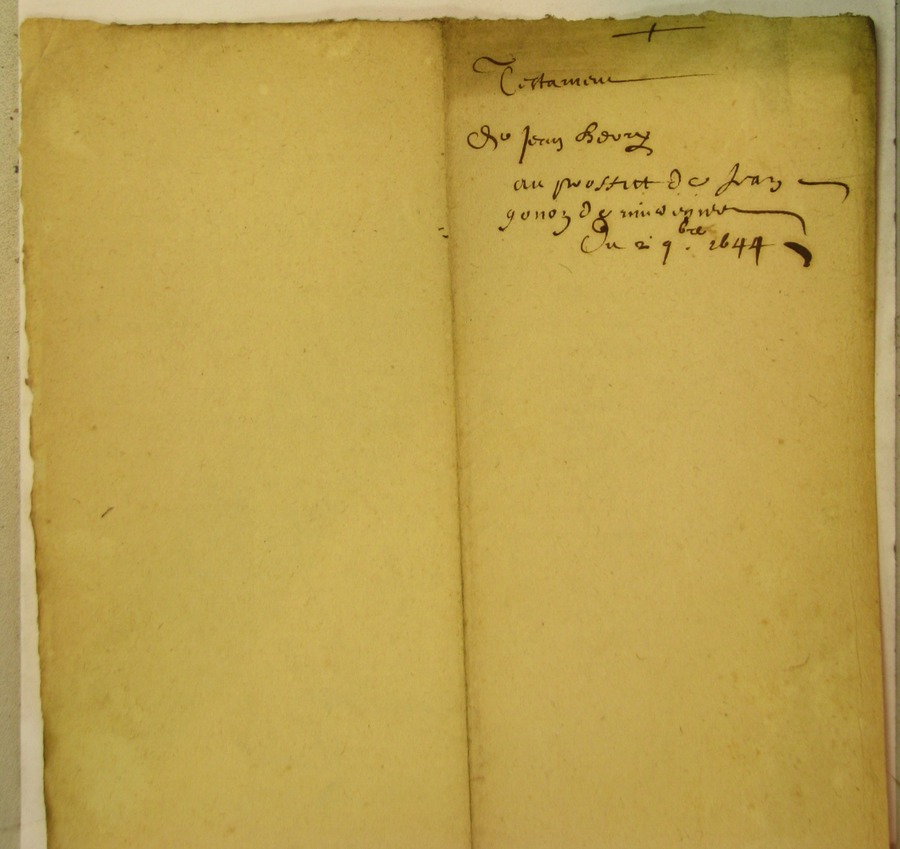 Testament
De Jean
au proffict de Jean
gonon de
Du 2 9.bre 1644